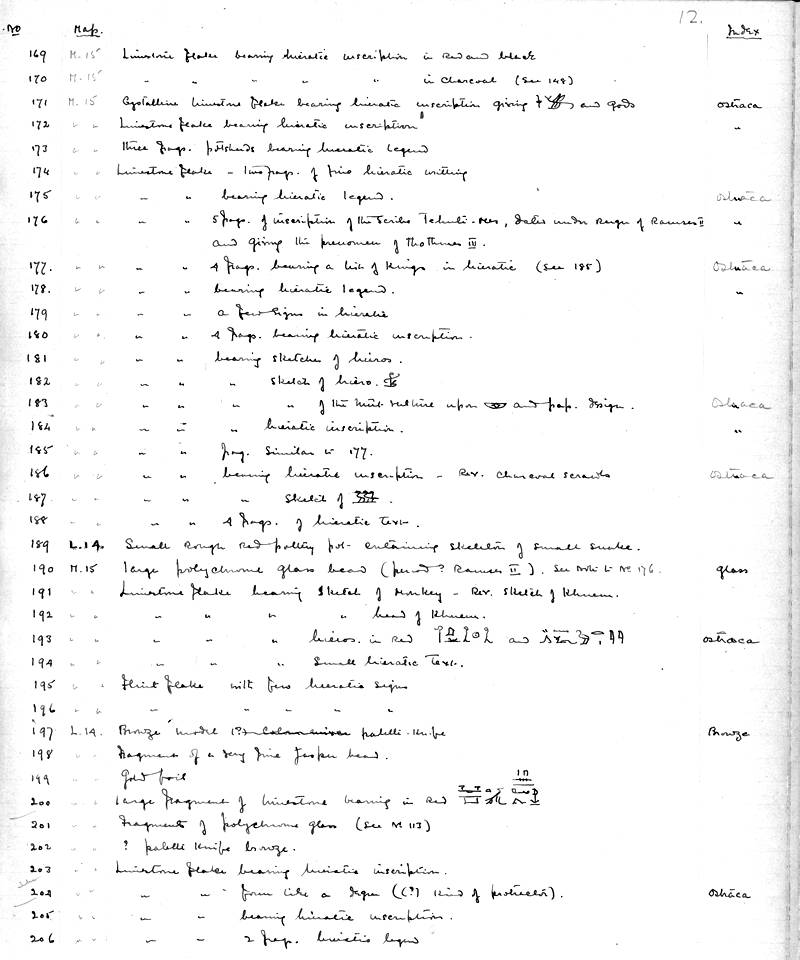 12.
No Map. Index
169 M.15 Limestone flake bearing hieratic inscription in red and black
170 M.15 " " " " " in charcoal (See 148)
171 M.15 Crystalline limestone flake bearing hieratic inscription giving and gods ostraca
172 " " Limestone flake bearing hieratic inscription "
173 " " Three frags. potsherds bearing hieratic legend
174 " " Limestone flake - two frags. of fine hieratic writing
175 " " " " bearing hieratic legend. Ostraca
176 " " " " 5 frags. of inscription of the Scribe Tehuti-mes, dated under reign of Ramses II "
and giving the prenomen of Thothmes IV.
177. " " " " 4 frags. bearing a list of Kings in hieratic (See 185) Ostraca
178. " " " " bearing hieratic legend. "
179 " " " " a few signs in hieratic
180 " " " " 4 frags. bearing hieratic inscription.
181 " " " " bearing sketches of hieros.
182 " " " " " sketch of hiero.
183 " " " " " " of the Mut vulture upon and pap. design. Ostraca
184 " " " " " hieratic inscription. "
185 " " " " frag. similar to 177.
186 " " " " bearing hieratic inscription - Rev. charcoal scrawls ostraca
187 " " " " " sketch of .
188 " " " " 4 frags. of hieratic text.
189 L.14. Small rough red pottery pot - containing skeleton of small snake.
190 M.15 large polychrome glass bead (period? Ramses II). See note to No 176. glass
191 " " Limestone flake bearing sketch of monkey - Rev. sketch of Khnem.
192 " " " " " " head of Khnem.
193 " " " " " hieros. in red and ostraca
194 " " " " " small hieratic text.
195 " " Flint flake with few hieratic signs
196 " " " " " " "
197 L.14. Bronze model palette-knife Bronze
198 " " Fragment of a very fine Jasper bead.
199 " " Gold foil
200 " " large fragment of limestone bearing in red
201 " " Fragments of polychrome glass (See No 113)
202 " " ? palette knife bronze.
203 " " Limestone flake bearing hieratic inscription.
204 " " " " form like a ((?) kind of protractor). Ostraca
205 " " " " bearing hieratic inscription.
206 " " " 2 frags. hieratic legend